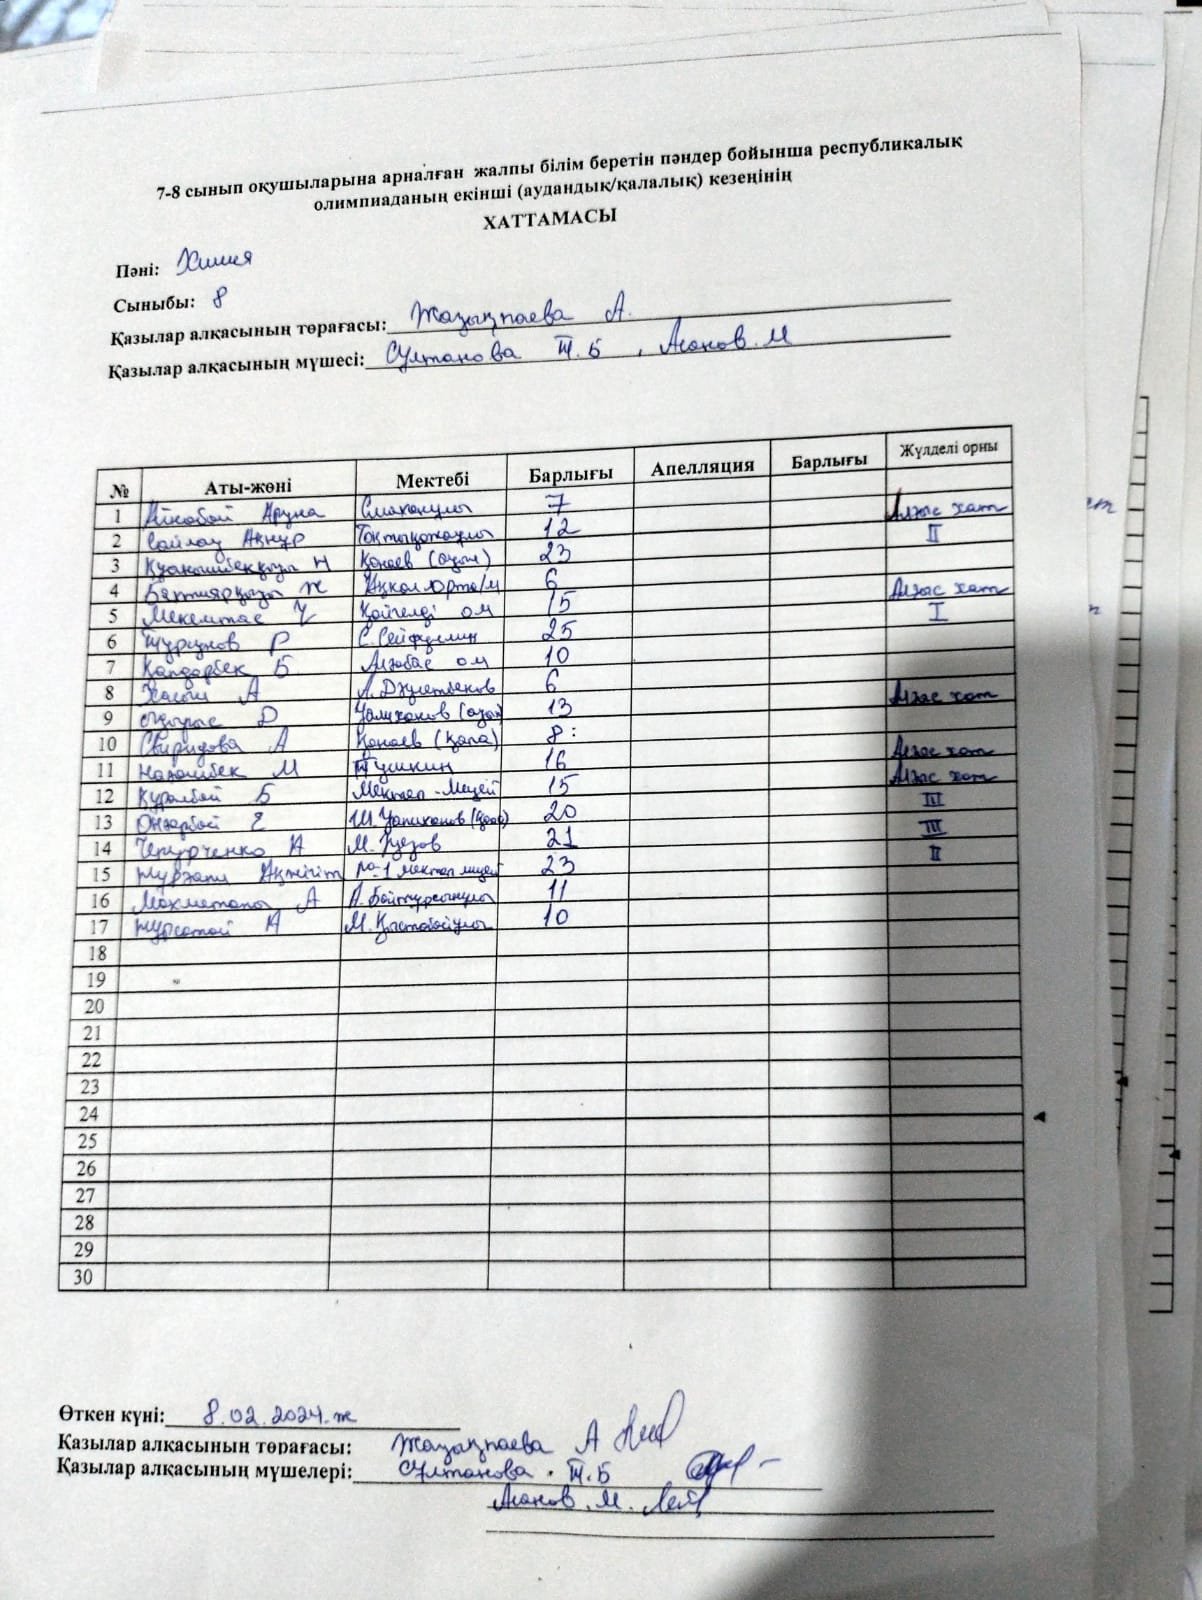 7-8 сынып оқушыларына арналған жалпы білім беретін пәндер бойынша республикалық
олимпиаданың екінші (аудандық/қалалық) кезеңінің
ХАТТАМАСЫ
Пәні: Химия
Сыныбы: 8
Қазылар алқасының төрағасы: Жазықпаева А.
Қазылар алқасының мүшесі: Султанова Т.Б, Асанов.М
№ Аты-жөні Мектебі Барлығы Апелляция Барлығы Жүлделі орны
1 Аруна 7 Алғыс хат
2 Сайлау Ақнұр 12 II
3 Қуанышбекқызы Н Қонаев (қазақ) 23
4 Бақтиярқызы Ж Ақкөл орта/м 6 Алғыс хат
5 Мекемтас Қойгелді ом 15 I
6 Тұрсунов Р С.Сейфуллин 25
7 Қалдарбек Б ом 10
8 А Л.Дәулетбеков 6 Алғыс хат
9 Ыдырыс D Уалиханов 13
10 Свиридова А Қонаев (қала) 8 : Алғыс хат
11 М Пушкин 16 Алғыс хат
12 Құралбай Б Мектеп-лицей 15 III
13 Оңғарбай Е Ш.Уалиханов 20 III
14 Чепурченко А М.Әуезов 21 II
15 Нұрғали Ақжігіт №1 мектеп лицей 23
16 Махметалы А А.Байтұрсынұлы 11
17 Нұрсатай А 10
18
19
20
21
22
23
24
25
26
27
28
29
30
Өткен күні: 8.02.2024.ж
Қазылар алқасының төрағасы: Жазықпаева А
Қазылар алқасының мүшелері: Султанова. Т.Б
Асанов.М.